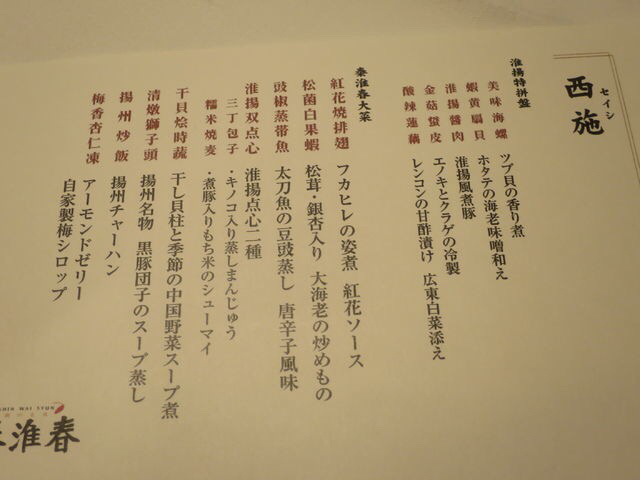 セイシ
西施
淮揚特拼盤
美味海螺 ツブ貝の香り煮
蝦黄扇貝 ホタテの海老味噌和え
淮揚醤肉 淮揚風煮豚
金菇蜇皮 エノキとクラゲの冷製
酸辣蓮藕 レンコンの甘酢漬け 広東白菜添え
秦淮春大菜
紅花焼排翅 フカヒレの姿煮 紅花ソース
松菌白果蝦 松茸・銀杏入り 大海老の炒めもの
豉椒蒸帯魚 太刀魚の豆豉蒸し 唐辛子風味
淮揚双点心 淮揚点心二種
三丁包子 ・キノコ入り蒸しまんじゅう
糯米焼麦 ・煮豚入りもち米のシューマイ
干貝烩時蔬 干し貝柱と季節の中国野菜スープ煮
清燉獅子頭 揚州名物 黒豚団子のスープ蒸し
揚州炒飯 揚州チャーハン
梅香杏仁凍 アーモンドゼリー
自家製梅シロップ
SHIN WAI SYUN
淮春